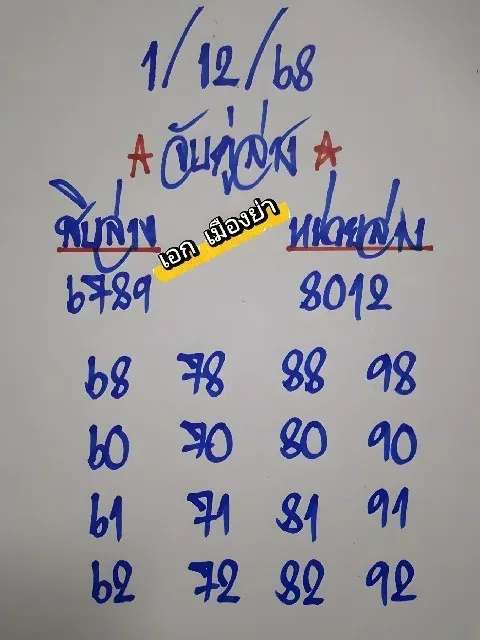 1/12/68
จับคู่ล่าง
สิบล่าง
เอก เมืองย่า
หน่วยล่าง
6789 8012
68 78 88 98
60 70 80 90
61 71 81 91
62 72 82 92